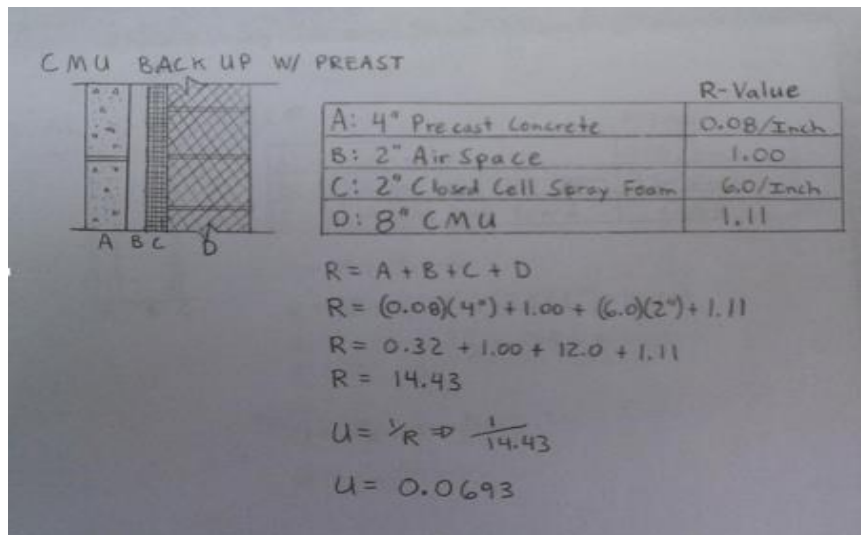 CMU BACK UP W/ PREAST
R-Value
A: 4" Precast Concrete 0.08/Inch
B: 2" Air Space 1.00
C: 2" Closed Cell Spray Foam 6.0/Inch
D: 8" CMU 1.11
A B C D
R = A + B + C + D
R = (0.08)(4") + 1.00 + (6.0)(2") + 1.11
R = 0.32 + 1.00 + 12.0 + 1.11
R = 14.43
U = 1/R ⇒ 1/14.43
U = 0.0693